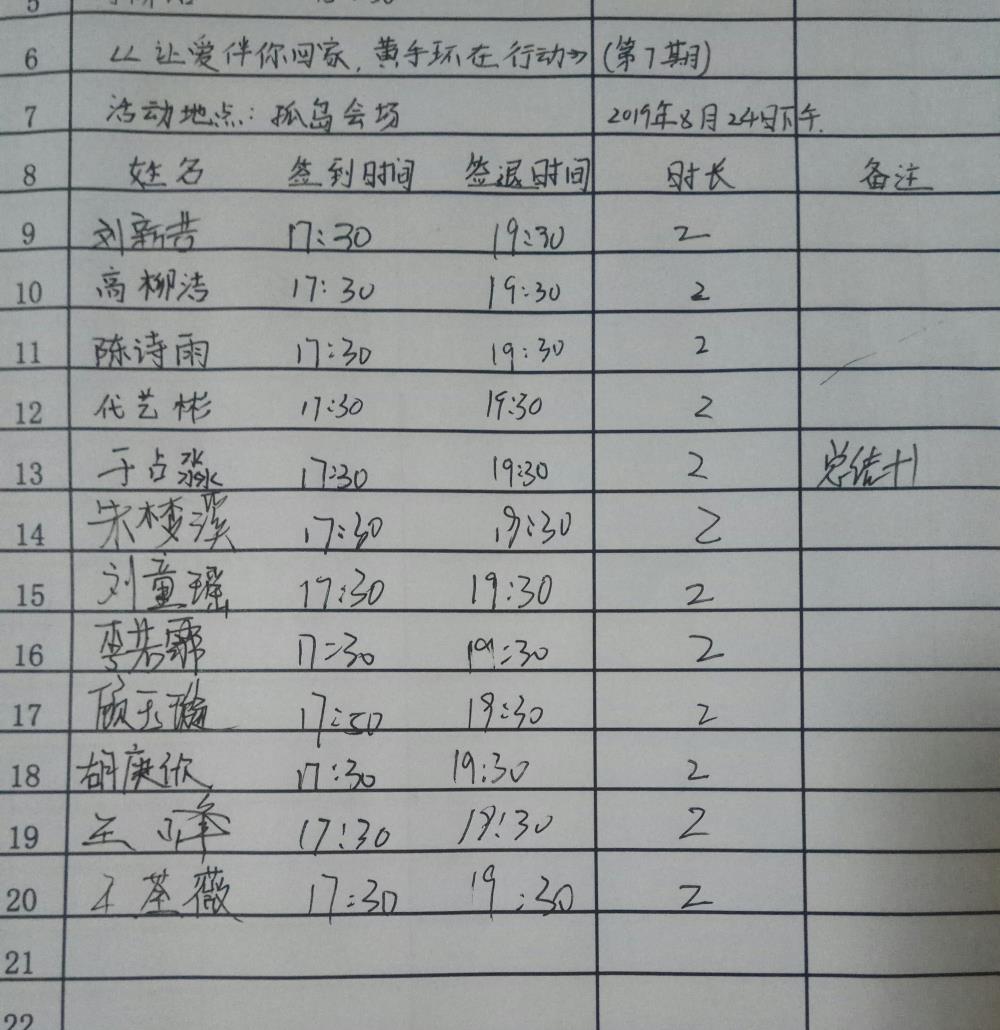 5
6 《让爱伴你回家,黄手环在行动》(第7期)
7 活动地点:孤岛会场 2019年8月24日下午.
8 姓名 签到时间 签退时间 时长 备注
9 刘新芸 17:30 19:30 2
10 高柳洁 17:30 19:30 2
11 陈诗雨 17:30 19:30 2
12 代艺彬 17:30 19:30 2
13 于占淼 17:30 19:30 2 总结+1
14 宋梦溪 17:30 19:30 2
15 刘童瑶 17:30 19:30 2
16 李若霏 17:30 19:30 2
17 顾玉璇 17:30 19:30 2
18 胡庚欣 17:30 19:30 2
19 王峰 17:30 19:30 2
20 王荃薇 17:30 19:30 2
21
22